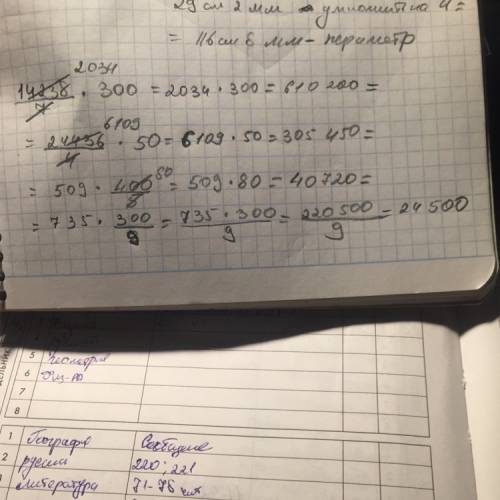 29 см 2 мм умножить на 4 =
= 116 см 8 мм - периметр
2034
14238/7 · 300 = 2034 · 300 = 610 200 =
6109
= 24436/4 · 50 = 6109 · 50 = 305 450 =
80
= 509 · 400/8 = 509 · 80 = 40720 =
= 735 · 300/9 = 735 · 300/9 = 220 500/9 = 24 500
5 Геометрия
6 Физ-ра
7
8
1 География Сообщение
2 русский 220; 221
литература 71-76 чит